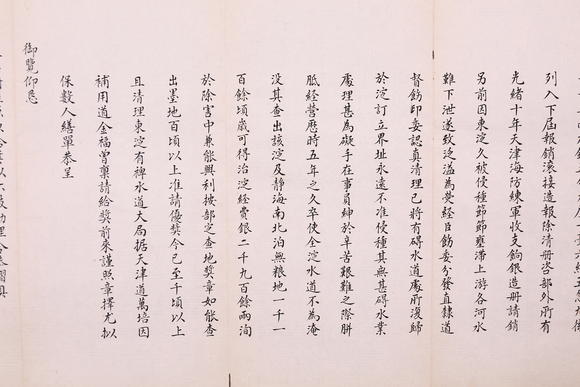 列入下屆報銷滾接造報除清册咨部外所有
光緒十年天津海防練軍收支餉銀造册請銷
另前因東淀久被侵種節節壅滯上游各河水
難下泄遂致泛溢為經臣飭委分發直隸道
督飭印委認真清理已將有碍水道處所復歸
於淀訂立界址永遠不准侵種其無甚碍水業
處理甚為礙手在事員紳於辛苦艱難之際胼
胝經營歷時五年之久卒使全淀水道不為淹
没其查出該淀及靜海南北泊無粮地一千一
百餘頃歲可得治淀經費銀二千九百餘兩洵
於除害中兼能興利按部定查地奨章如能查
出墨地百頃以上准請優奨今已至千頃以上
且清理東淀有裨水道大局据天津道萬培因
補用道金福曾禀請給奨前來謹照章擇尤拟
保數人繕單恭呈
御覽仰恳